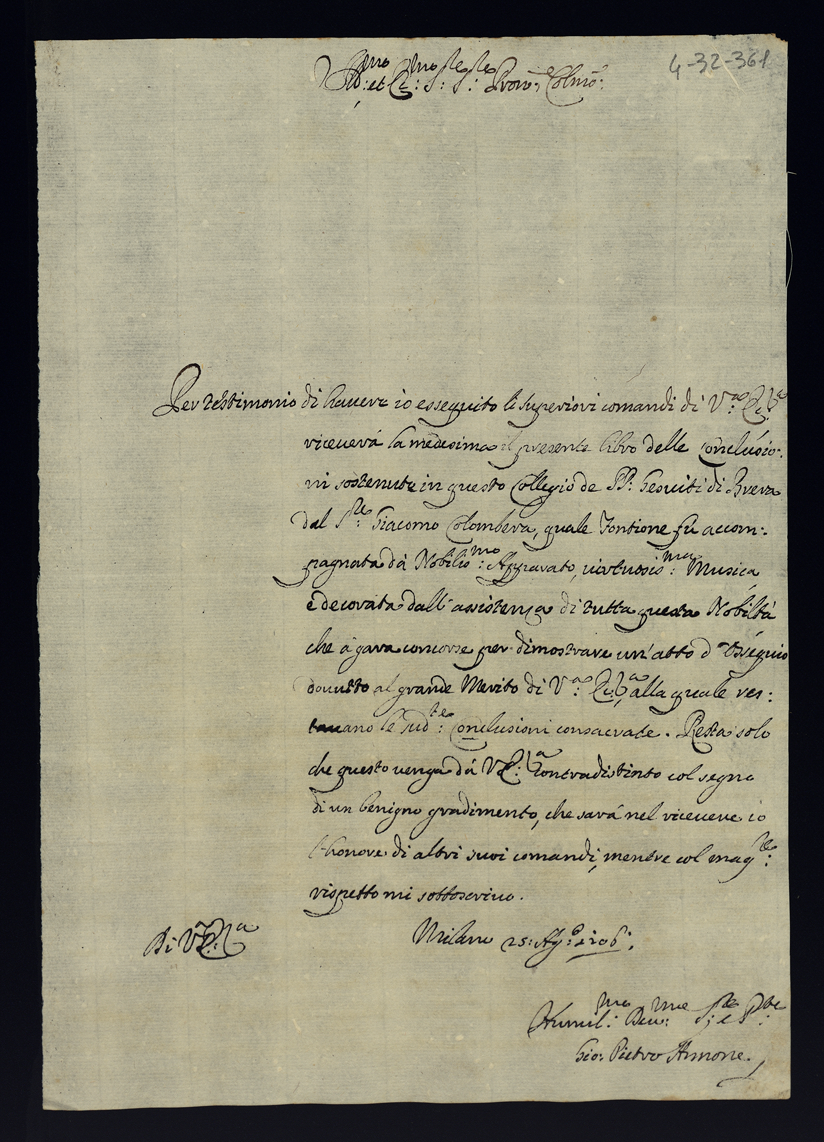 4-32-361
Ill:mo et Ecc:mo S:re S:re Pron:e Colmo:
Per testimonio di havere io esseguito li superiori comandi di V:ra Ecc:za
riceverá la medesima il presente libro delle Conclusio:
ni sostenute in questo Collegio de PP: Gesuiti di Brera
dal S:re Giacomo Colombera, quale fontione fú accom:
pagnata dá Nobilis:mo Apparato, virtuosis:ma Musica
e decorata dall'assistenza di tutta questa Nobiltá
che á gara concorse per dimostrare un'atto d'Ossequio
dovuto al grande Merito di V:a Ecc:za alla quale res:
tavano le sud:te Conclusioni consacrate. Resta solo
che questo venga dá V. E:za contradistinto col segno
di un benigno gradimento, che sará nel ricevere io
l'honore di altri suoi comandi, mentre col mag:re
rispetto mi sottoscrivo.
Di V. E:za
Milano 25: Ag:o 1706:
Humil:mo Dev:mo S:re e S:re
Gio: Pietro Annone.